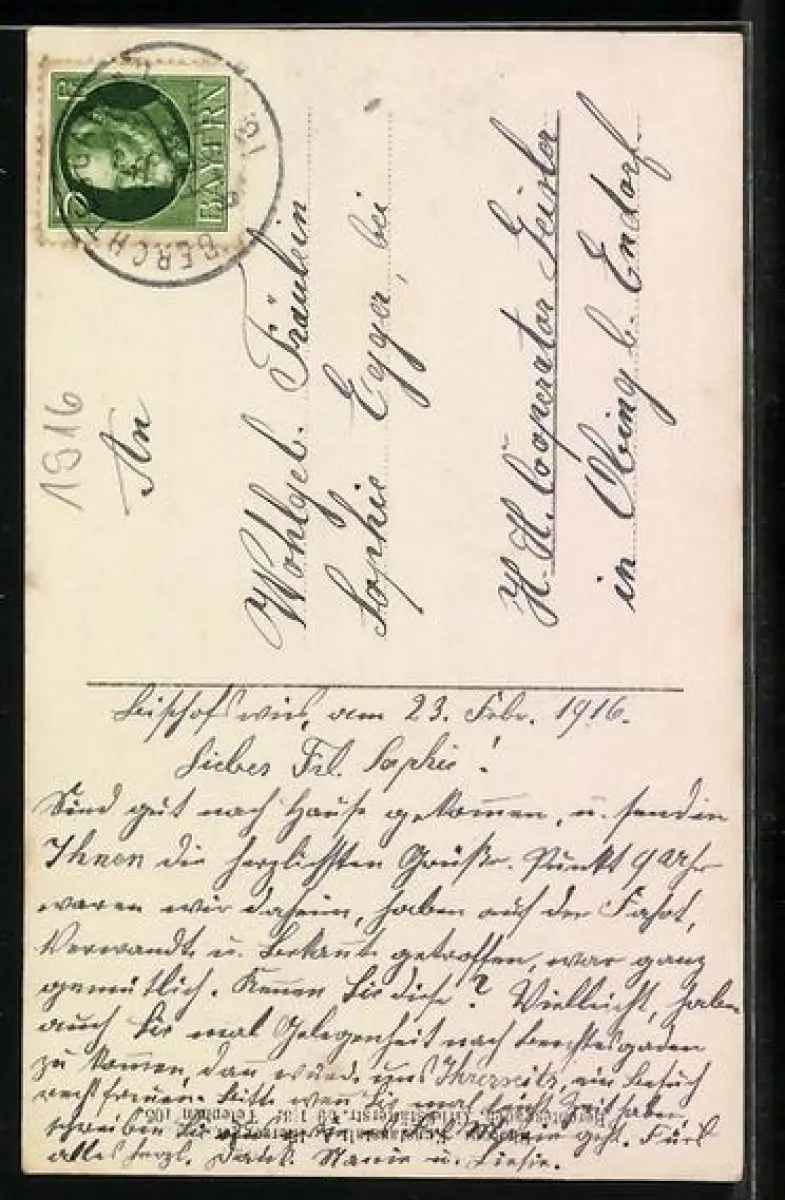 BAYERN
5
BERCHT
1916
An
Wohlgeb. Fräulein
Sophie Egger, bei
H. H. Cooperator Geisler
in Obing b. Endorf.
Bischofswies, am 23. Febr. 1916.
Liebes Frl. Sophie!
Sind gut nach Hause gekommen, u. senden
Ihnen die herzlichsten Grüße. Punkt 9 Uhr
waren wir daheim, haben auf der Fahrt,
Verwandte u. Bekannte getroffen, war ganz
gemütlich. Kennen Sie diese? Vielleicht, haben
auch Sie mal Gelegenheit nach Berchtesgaden
zu kommen, dann würde uns Ihrerseits, ein Besuch
recht freuen. Bitte wenn Sie mal Zeit haben
schreiben Sie geht. Für
alles herzl. Dank. u.
Telephon 105